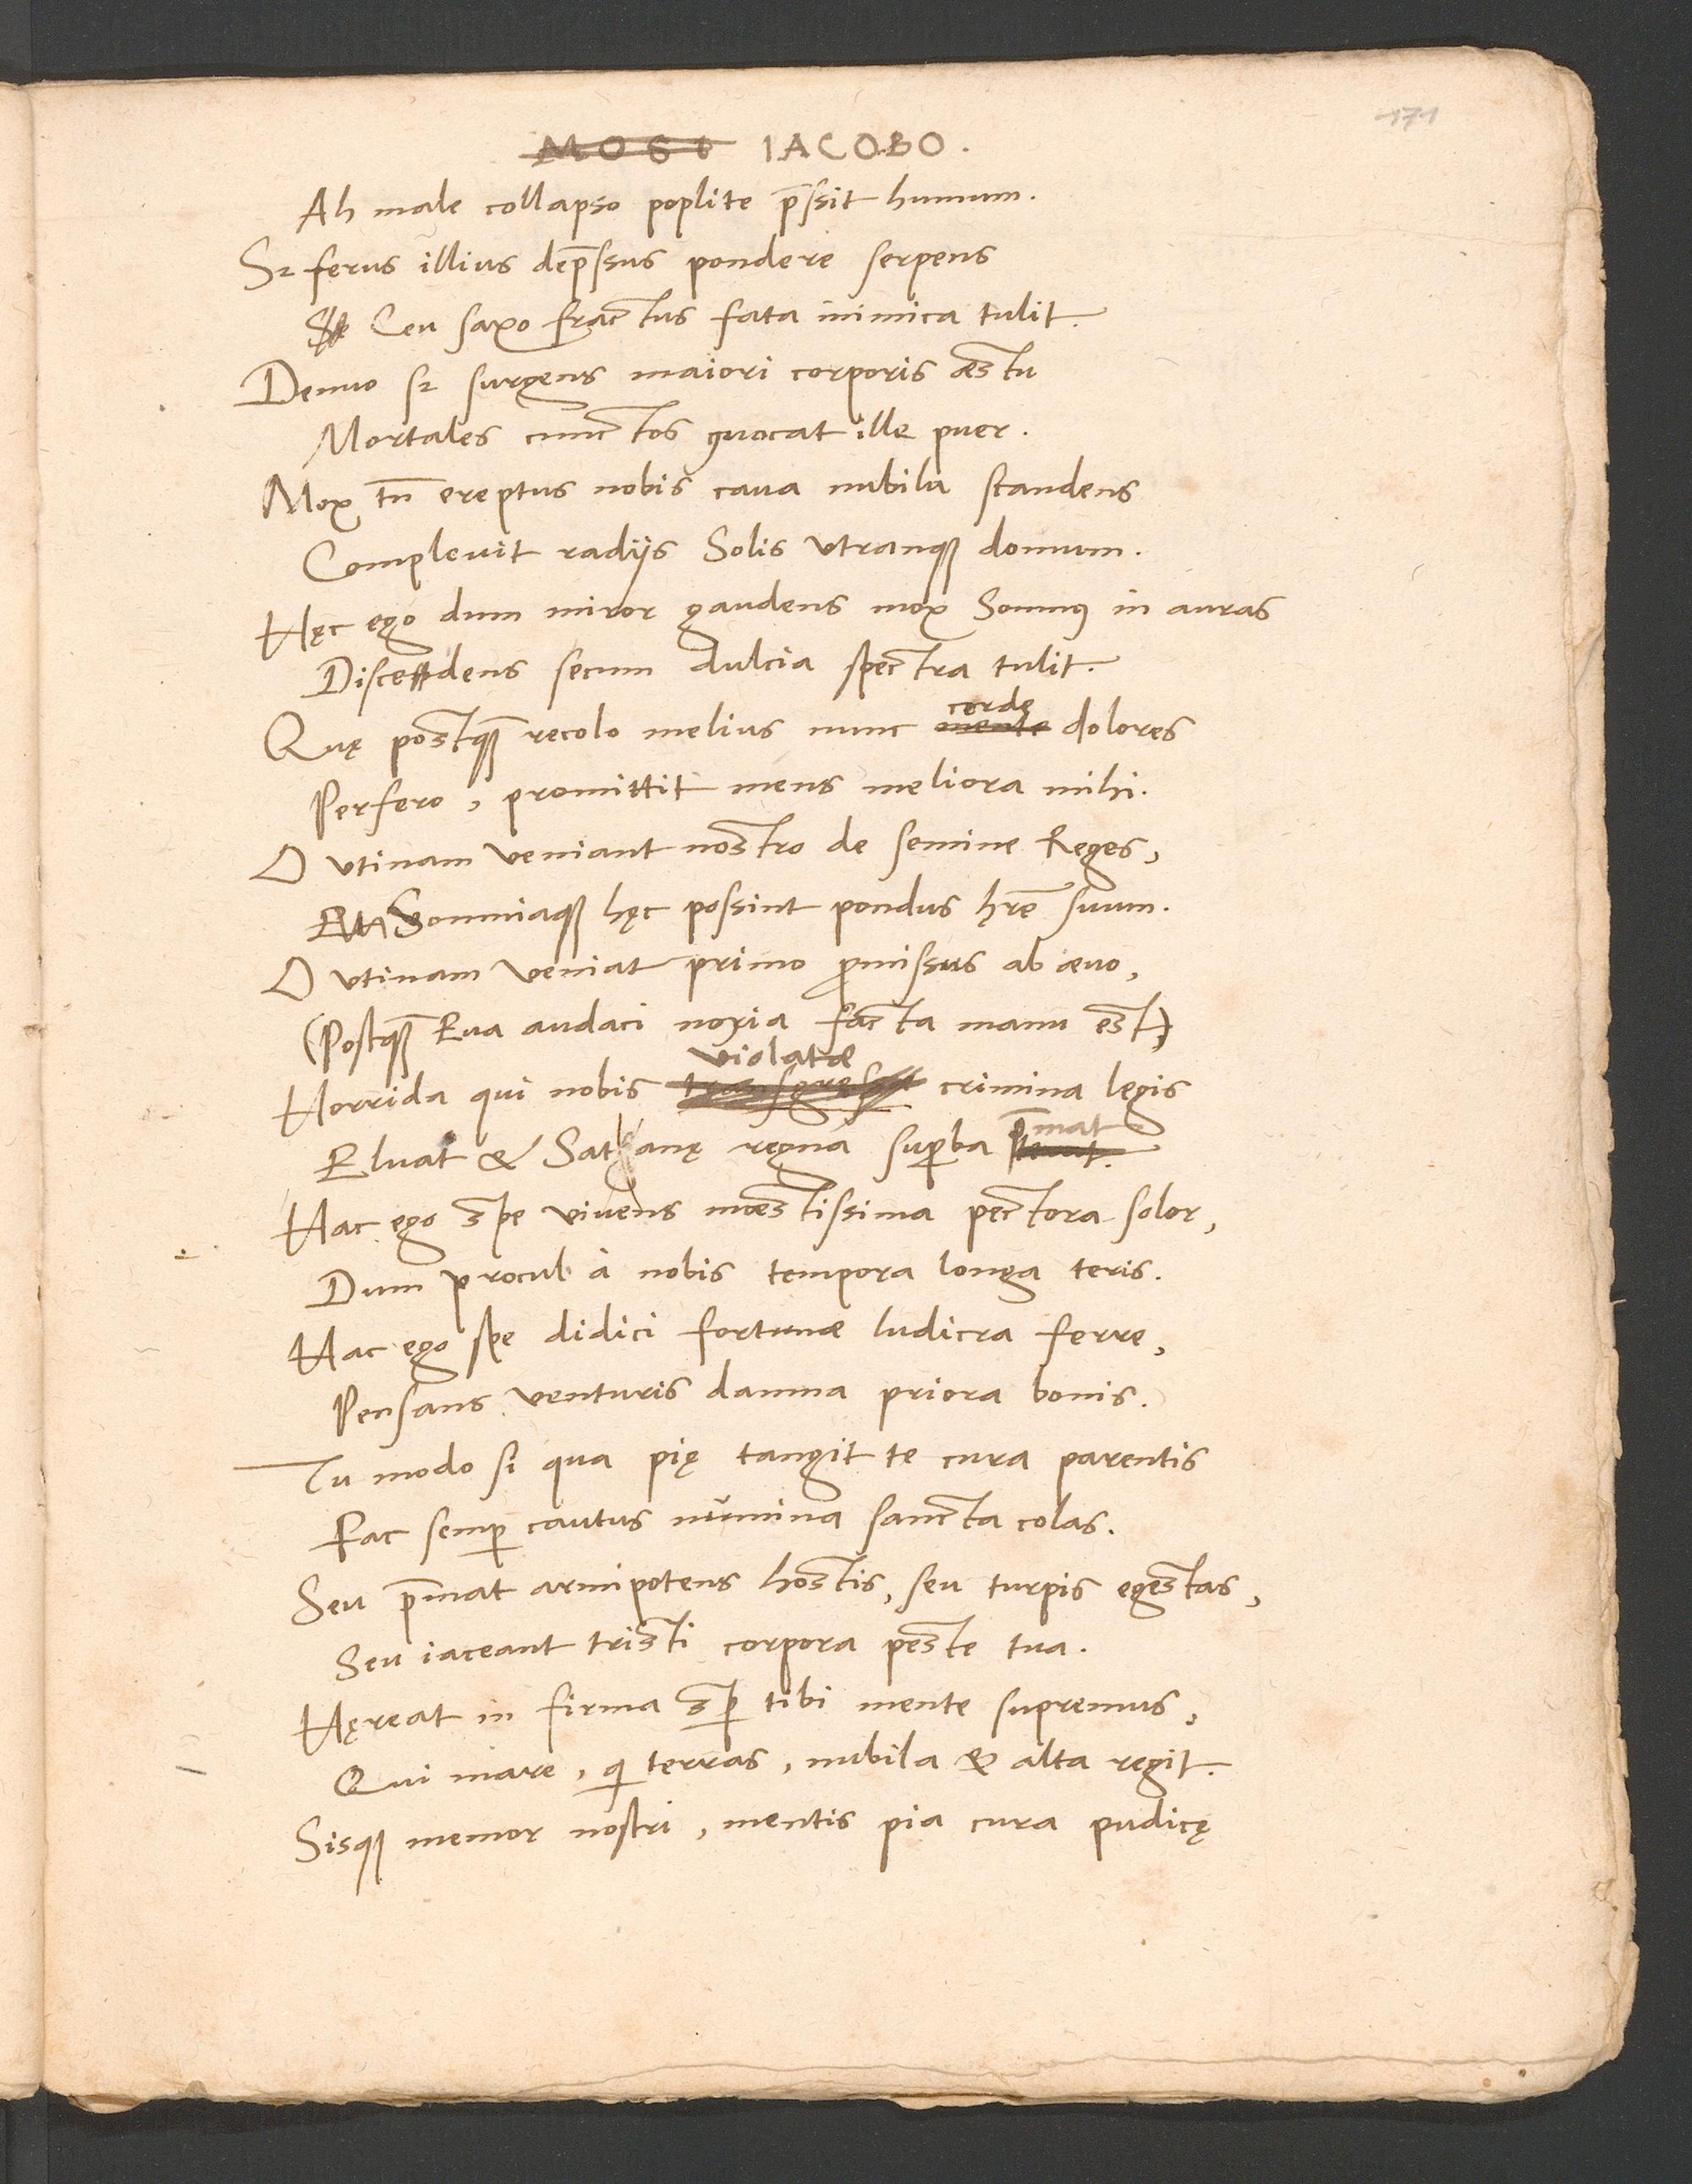 171
MOSI IACOBO.
Ah male collapso poplite p̄ssit humum.
Sꝫ ferus illius dep̄ssus pondere serpens
Ceu saxo fractus fata inimica tulit.
Denuo sꝫ surgens maiori corporis æstu
Mortales cunctos ꝯuocat ille puer.
Mox tn̄ ereptus nobis caua nubila scandens
Compleuit radijs Solis vtranqꝫ domum.
Hęc ego dum miror gaudens mox Somnꝰ in auras
Discedens secum dulcia spectra tulit.
Quę postqꝫ̄ recolo melius nunc mente corde dolores
Perfero, promittit mens meliora mihi.
O vtinam veniant nostro de semine Reges,
Somniaqꝫ hęc possint pondus hr̄e suum.
O vtinam veniat primo ꝓmissus ab æuo,
(Postqꝫ̄ Eua audaci noxia facta manu est)
Horrida qui nobis violatæ crimina legis
Eluat & Sathanę regna suꝑba p̄mat
Hac ego spe viuens mœstissima pectora solor,
Dum procul à nobis tempora longa teris.
Hac ego spe didici fortunæ ludicra ferre,
Pensans venturis damna priora bonis.
Tu modo si qua pię tangit te cura parentis
Fac semꝑ cautus numina sancta colas.
Seu p̄mat armipotens hostis, seu turpis egestas,
Seu iaceant tristi corpora peste tua.
Hęreat in firma sꝑ tibi mente supremus,
Qui mare, qi terras, nubila & alta regit.
Sisqꝫ memor nostri, mentis pia cura pudicę